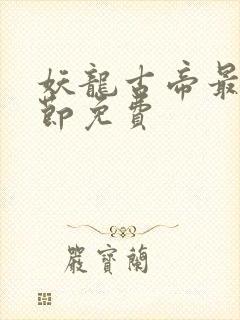 妖龍古帝最
節免費
嚴寶蘭